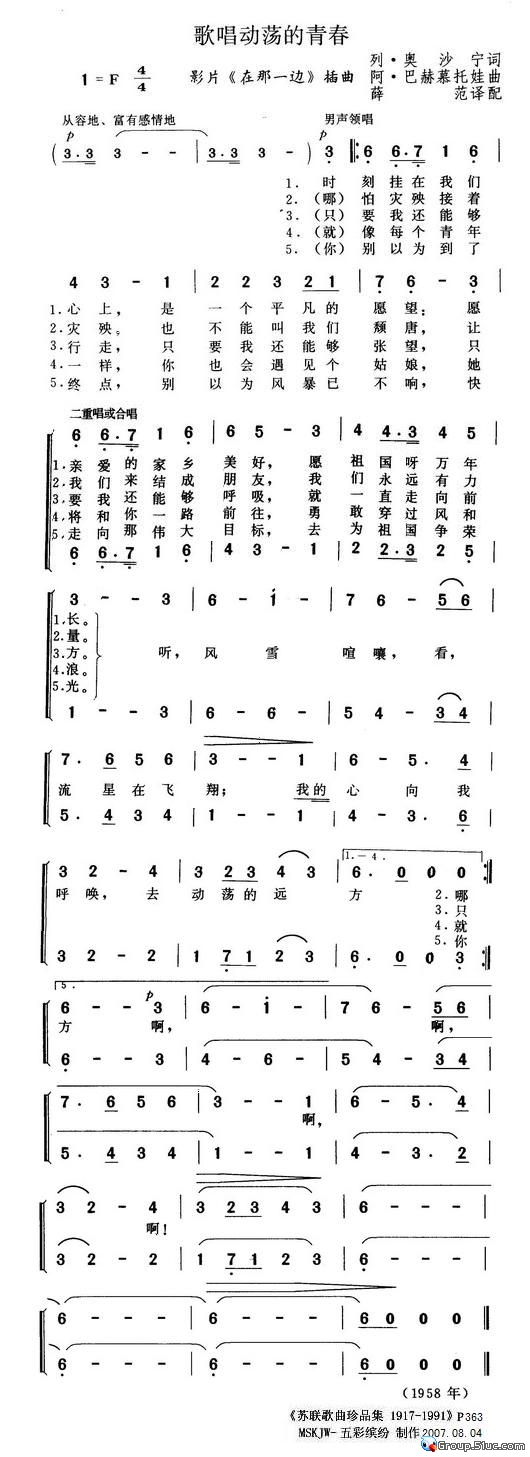 歌唱动荡的青春
列·奥沙宁词
1=F 4/4 影片《在那一边》插曲 阿·巴赫慕托娃曲
薛范译配
从容地、富有感情地 男声领唱
p p
( 3·3 3 - - | 3·3 3 - - ) 3 ‖: 6 6·7 1 6 |
1. 时刻挂在我们
2.(哪)怕灾殃接着
3.(只)要我还能够
4.(就)像每个青年
5.(你)别以为到了
4 3 - 1 | 2 2 3 2 1 | 7 6 - 3 |
1.心上，是一个平凡的愿望：愿
2.灾殃。也不能叫我们颓唐，让
3.行走，只要我还能够张望，只
4.一样，你也会遇见个姑娘，她
5.终点，别以为风暴已不响，快
二重唱或合唱
6 6·7 1 6 | 6 5 - 3 | 4 4·3 4 5 |
1.亲爱的家乡美好，愿祖国呀万年
2.我们来结成朋友，我们永远有力
3.要我还能够呼吸，就一直走向前
4.将和你一路前往，勇敢穿过风和
5.走向那伟大目标，去为祖国争荣
6 6·7 1 6 | 4 3 - 1 | 2 2·3 2 5 |
3 - - 3 | 6 - 1 - | 7 6 - 5 6 |
1.长。
2.量。
3.方。 听，风雪喧嚷，看，
4.浪。
5.光。
1 - - 3 | 6 - 6 - | 5 4 - 3 4 |
7· 6 5 6 | 3 - - 1 | 6 - 5· 4 |
流星在飞翔；我的心向我
5· 4 3 4 | 1 - - 1 | 4 - 3· 6 |
1.-4.
3 2 - 4 | 3 2 3 4 3 | 6· 0 0 0 :‖
呼唤，去动荡的远方 2.哪
3.只
4.就
5.你
3 2 - 2 | 1 7 1 2 3 | 6· 0 0 3 :‖
5.
p
6 - - 3 | 6 - 1 - | 7 6 - 5 6 |
方 啊， 啊，
6 - - 3 | 4 - 6 - | 5 4 - 3 4 |
7· 6 5 6 | 3 - - 1 | 6 - 5· 4 |
啊，
5· 4 3 4 | 1 - - 1 | 4 - 3· 2 |
3 2 - 4 | 3 2 3 4 3 | 6 - - - |
啊！
3 2 - 2 | 1 7 1 2 3 | 6 - - - |
6 - - - | 6 - - - | 6 0 0 0 ‖
6 - - - | 6 - - - | 6 0 0 0 ‖
(1958 年)
《苏联歌曲珍品集 1917-1991》P363
MSKJW-五彩缤纷 制作2007.08.04
Group.5luc.com